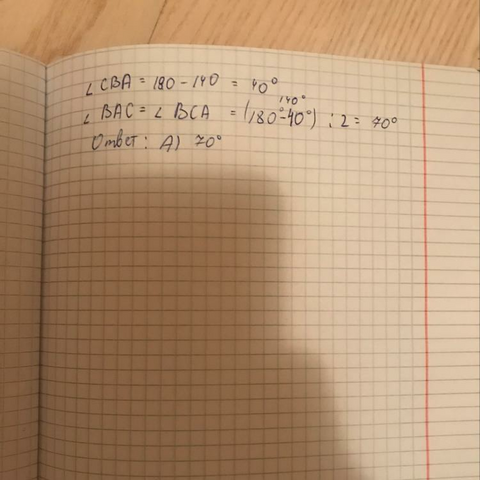 ∠ CBA = 180 - 140 = 40°
140°
∠ BAC = ∠ BCA = (180°-40°) : 2 = 70°
Ответ: А) 70°